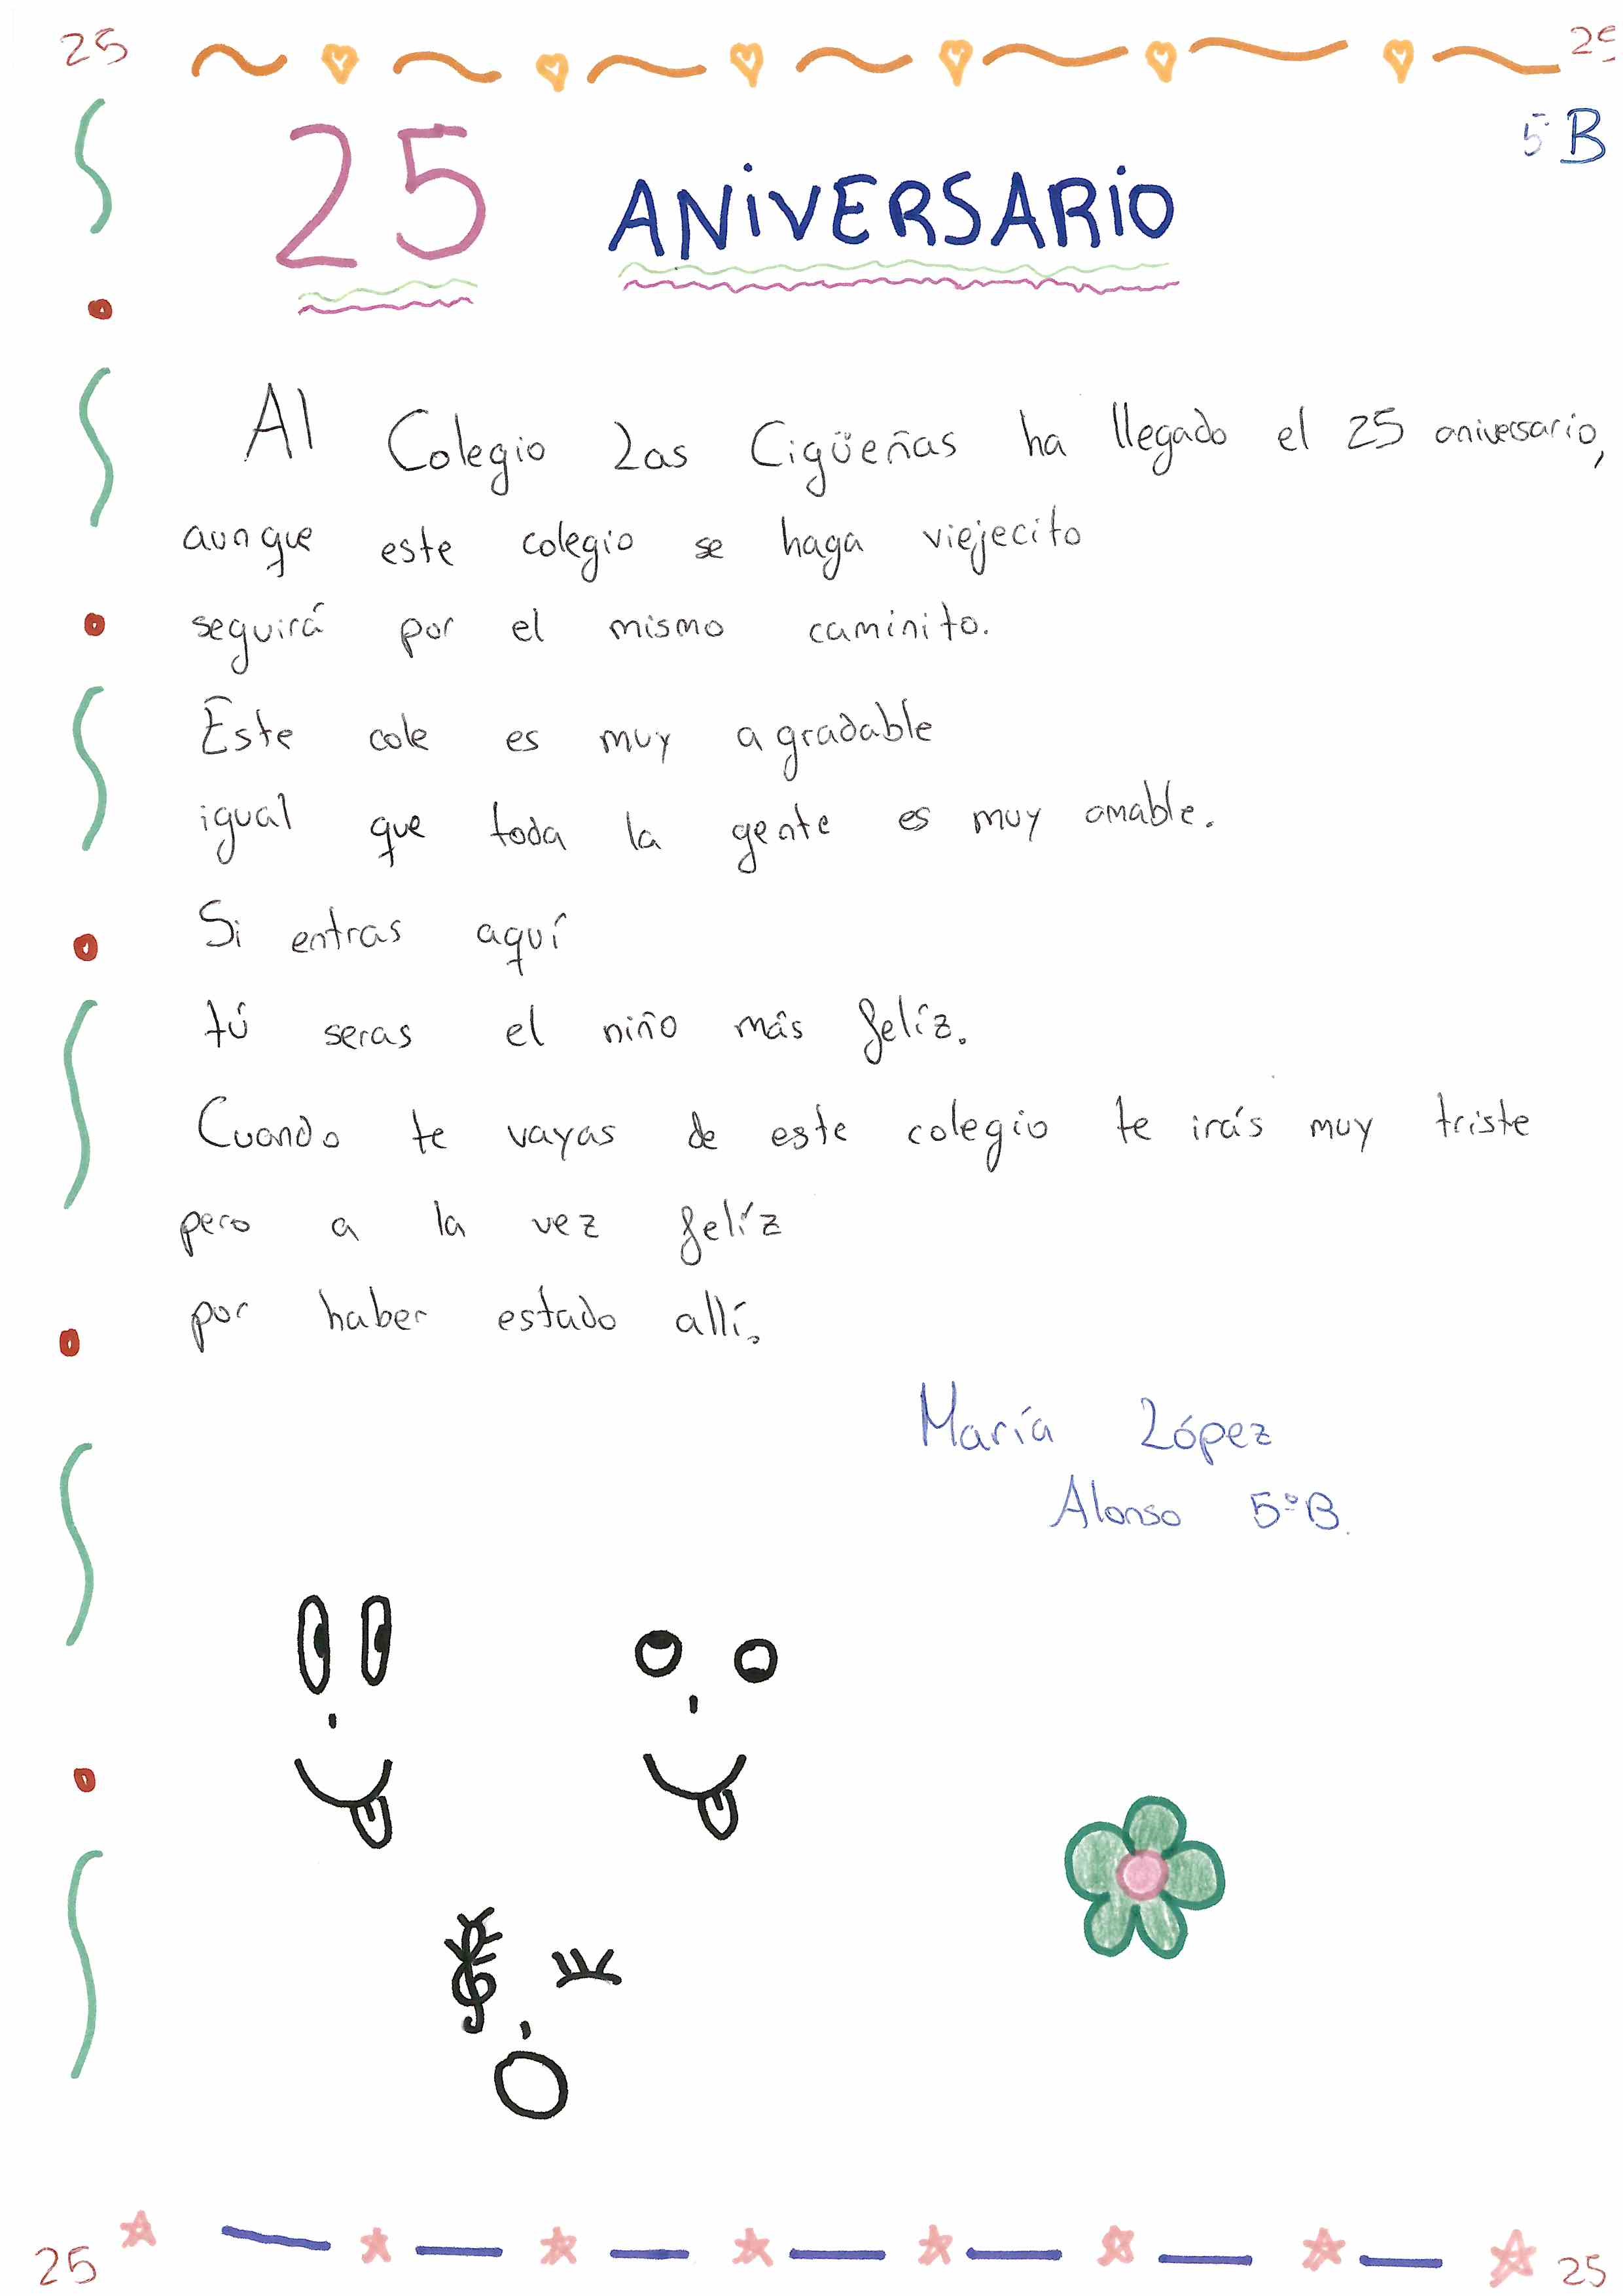 25 25
5 B
25 ANiVERSARiO
Al Colegio Las Cigüeñas ha llegado el 25 aniversario,
aunque este colegio se haga viejecito
seguirá por el mismo caminito.
Este cole es muy agradable
igual que toda la gente es muy amable.
Si entras aquí
tú seras el niño más felíz.
Cuando te vayas de este colegio te irás muy triste
pero a la vez felíz
por haber estado allí.
María López
Alonso 5ºB.
25 25